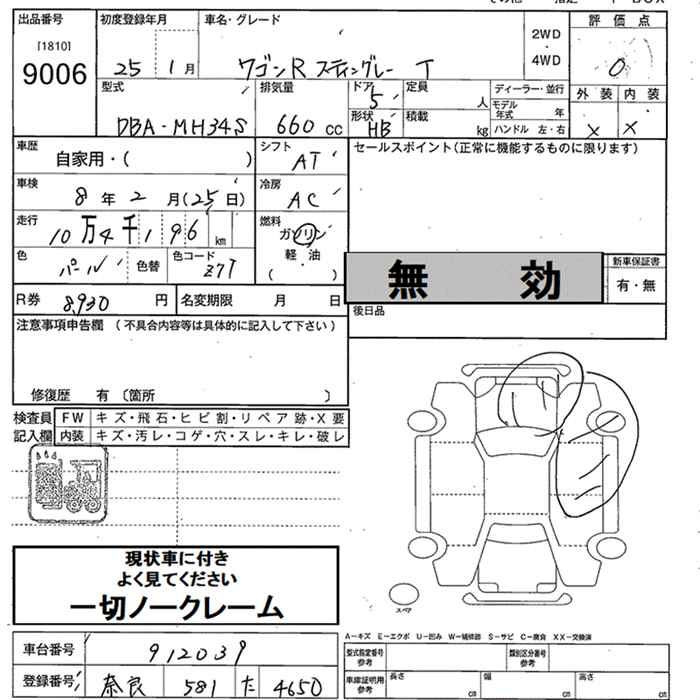 出品番号
[1810]
9006
初度登録年月
25 1月
車名・グレード
ワゴンR スティングレー T
2WD
・
4WD
評価点
0
外装 内装
× ×
型式
DBA-MH34S
排気量
660 cc
ドア
5
形状
HB
定員
人
積載
kg
ディーラー・並行
モデル年式 年
ハンドル 左・右
車歴
自家用・( )
シフト
AT
セールスポイント(正常に機能するものに限ります)
車検
8年2月(25日)
冷房
AC
走行
10万4千196 km
燃料
ガソリン
軽・油
( )
色
パール
色替
色コード
Z7T
無 効
新車保証書
有・無
R券
8,930 円
名変期限 月 日
後日品
注意事項申告欄 (不具合内容等は具体的に記入して下さい)
修復歴 有 〔箇所 〕
検査員
記入欄
FW キズ・飛石・ヒビ割・リペア跡・X要
内装 キズ・汚レ・コゲ・穴・スレ・キレ・破レ
現状車に付き
よく見てください
一切ノークレーム
スペア
A-キズ E-エクボ U-凹み W-補修跡 S-サビ C-腐食 XX-交換済
車台番号
912039
登録番号
奈良 581 た 4650
型式指定番号
参考
類別区分番号
参考
車庫証明用
参考
長さ cm
幅 cm
高さ cm